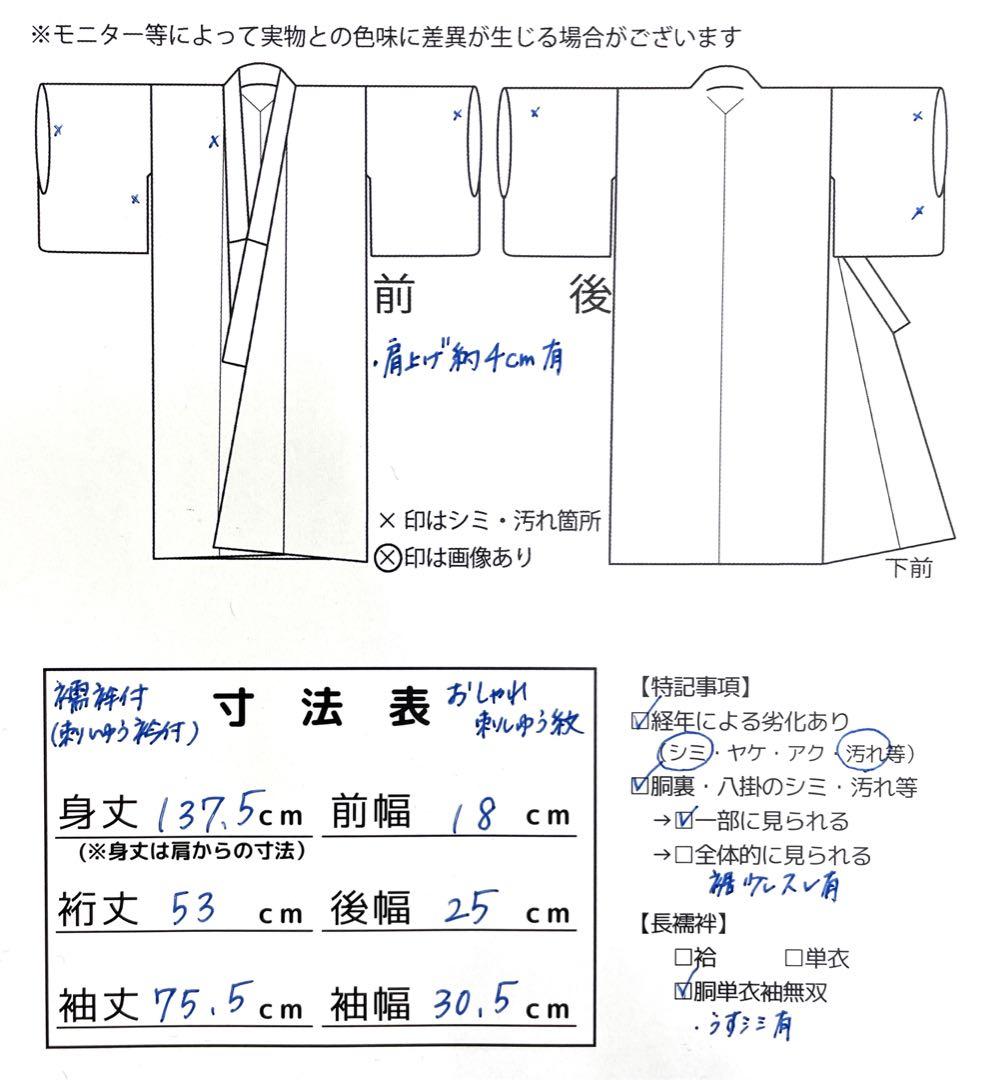 ※モニター等によって実物との色味に差異が生じる場合がございます
前
後
・肩上げ約4cm有
× 印はシミ・汚れ箇所
Ⓧ印は画像あり
下前
襦袢付
(刺しゅう衿付)
寸法表
おしゃれ
刺しゅう紋
身丈 137.5cm
前幅 18 cm
(※身丈は肩からの寸法)
裄丈 53 cm
後幅 25 cm
袖丈 75.5cm
袖幅 30.5cm
【特記事項】
☑経年による劣化あり
(シミ・ヤケ・アク・汚れ等)
☑胴裏・八掛のシミ・汚れ等
→☑一部に見られる
→□全体的に見られる
裾ウレスレ有
【長襦袢】
□袷 □単衣
☑胴単衣袖無双
・うすシミ有